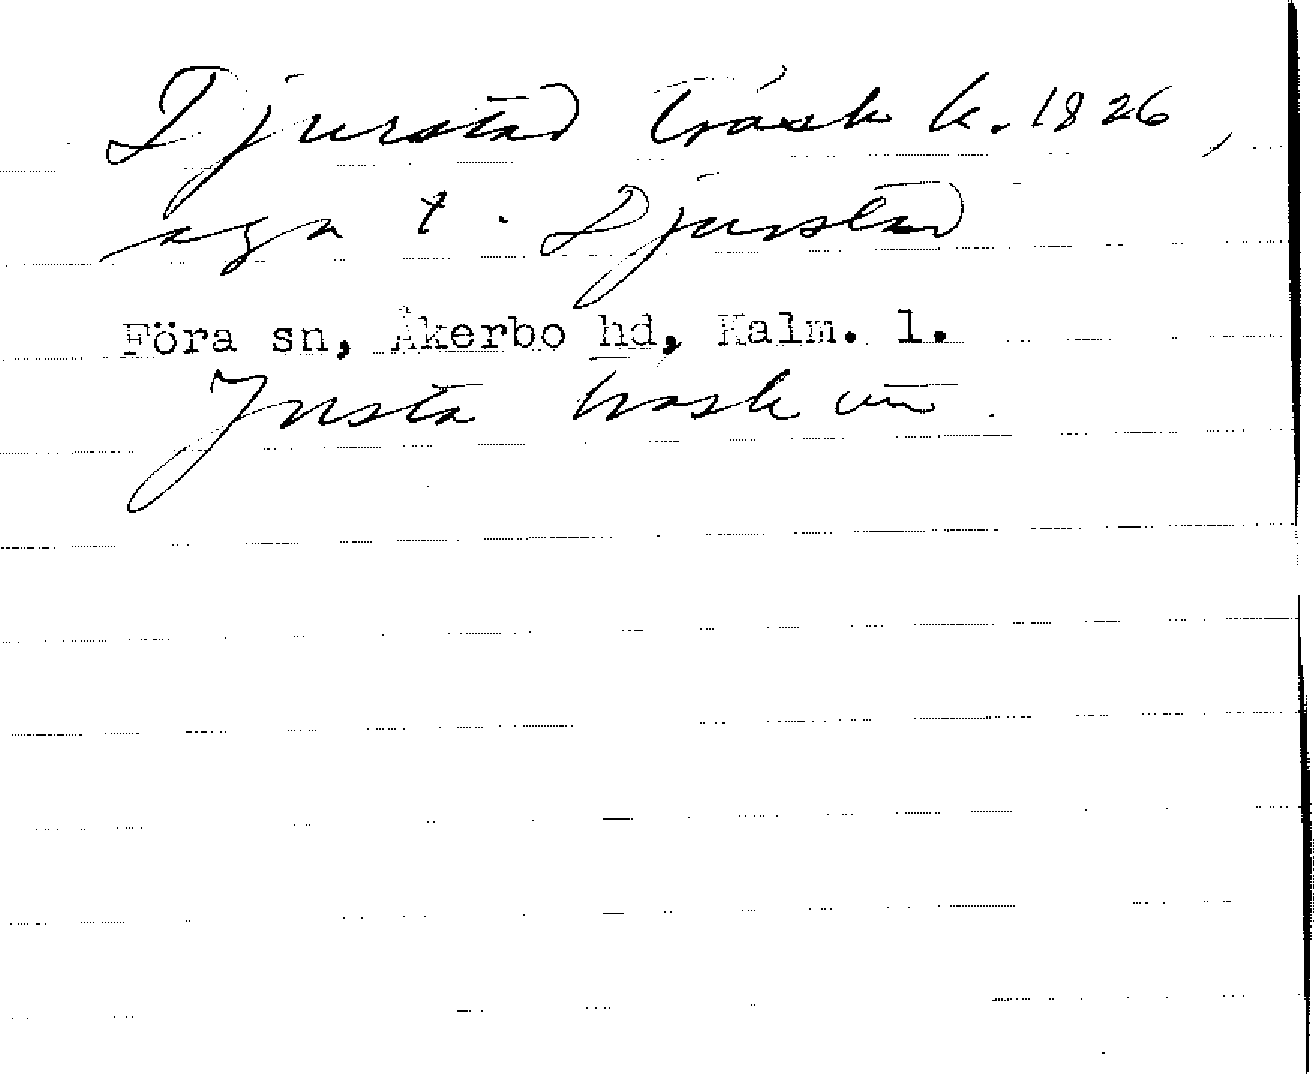 Djurstad träsk k. 1826,
äga t. Djurstad
Föra sn, Åkerbo hd, Kalm. l.
Jnsta träsk